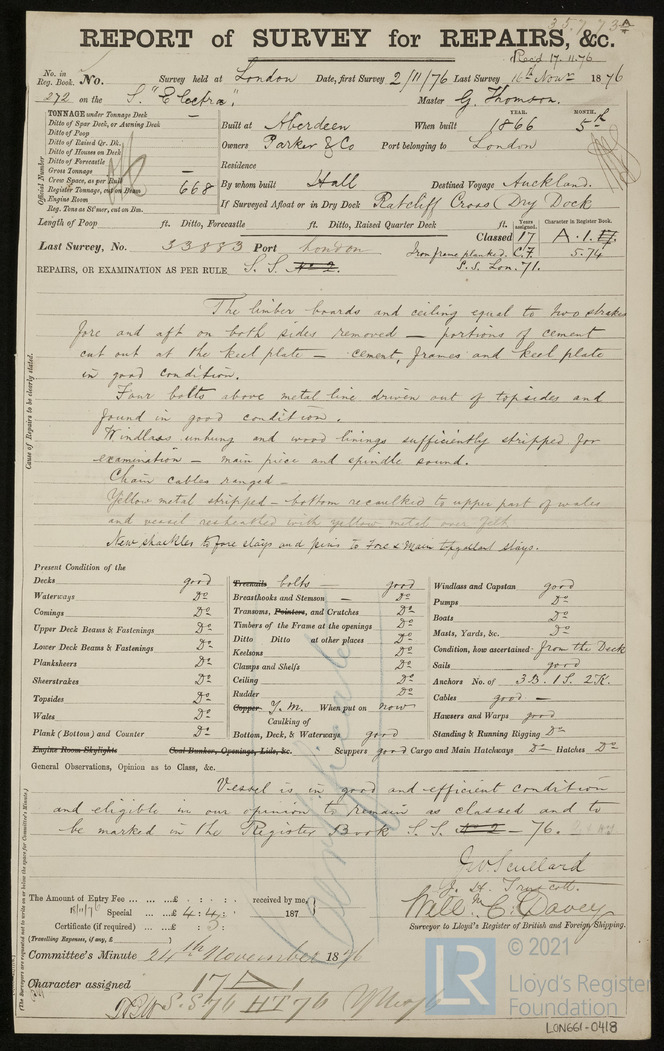 35773 A
REPORT of SURVEY for REPAIRS, &c.
Rec'd 17.11.76
No. in Reg. Book. No. Survey held at London Date, first Survey 2/11/76 Last Survey 16th Novr 1876
272 on the S. "Electra", Master G. Thomson.
TONNAGE under Tonnage Deck —
Ditto of Spar Deck, or Awning Deck
Ditto of Poop
Ditto of Raised Qr. Dk.
Ditto of Houses on Deck
Ditto of Forecastle
Gross Tonnage —
Crew Space, as per Rule
Register Tonnage, cut on Beam 668
Engine Room
Reg. Tons as St'mer, cut on Bm.
Official Number
YEAR. MONTH.
Built at Aberdeen When built 1866 5th
Owners Parker & Co Port belonging to London
Residence
By whom built Hall Destined Voyage Auckland.
If Surveyed Afloat or in Dry Dock Ratcliff Cross (Dry Dock
Length of Poop ft. Ditto, Forecastle ft. Ditto, Raised Quarter Deck ft. Years assigned. Character in Register Book.
Classed 17 A.1.
Last Survey, No. 33883 Port London Iron frame planked. C.F. 5.74
S.S. Lon. 71.
REPAIRS, OR EXAMINATION AS PER RULE S.S. No 2.
The limber boards and ceiling equal to two strakes
fore and aft on both sides removed — portions of cement
cut out at the keel plate — cement, frames and keel plate
in good condition.
Four bolts above metal line driven out of topsides and
found in good condition.
Windlass unhung and wood linings sufficiently stripped for
examination — main piece and spindle sound.
Chain cables ranged —
Yellow metal stripped — bottom recaulked to upper part of wales
and vessel resheathed with yellow metal over felt
New shackles to fore stays and pins to Fore & Main topgallant stays.
Cause of Repairs to be clearly stated.
Present Condition of the
Decks good
Waterways Do
Comings Do
Upper Deck Beams & Fastenings Do
Lower Deck Beams & Fastenings Do
Planksheers Do
Sheerstrakes Do
Topsides Do
Wales Do
Plank (Bottom) and Counter Do
Treenails bolts — good
Breasthooks and Stemson — Do
Transoms, Pointers, and Crutches Do
Timbers of the Frame at the openings Do
Ditto Ditto at other places Do
Keelsons Do
Clamps and Shelfs Do
Ceiling Do
Rudder Do
Copper Y.M. When put on now
Caulking of
Bottom, Deck, & Waterways good
Windlass and Capstan good
Pumps Do
Boats Do
Masts, Yards, &c. Do
Condition, how ascertained from the Deck
Sails good
Anchors No. of 3B. 1S. 2K.
Cables good —
Hawsers and Warps good
Standing & Running Rigging Do
Engine Room Skylights Coal Bunker, Openings, Lids, &c. Scuppers good Cargo and Main Hatchways Do Hatches Do
General Observations, Opinion as to Class, &c.
Vessel is in good and efficient condition
and eligible in our opinion to remain as classed and to
be marked in the Register Book S.S. No 2 — 76.
Certificate
G. W. Scullard
J. H. Truscott.
Willm C. Davey
Surveyor to Lloyd's Register of British and Foreign Shipping.
The Amount of Entry Fee £ : : received by me,
18/11/76 Special £ 4:4: 187
Certificate (if required) £ : 5:
(Travelling Expenses, if any, £ )
Committee's Minute 24th November 1876
Character assigned 17 A 1
S.S 76 HT 76
(The Surveyors are requested not to write on or below the space for Committee's Minute.)
LR © 2021
Lloyd's Register
Foundation
LON661-0418